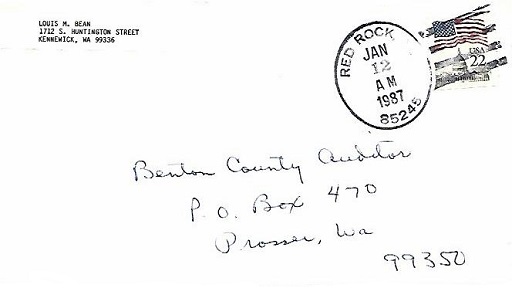 LOUIS M. BEAN
1712 S. HUNTINGTON STREET
KENNEWICK, WA 99336
RED ROCK
JAN
12
AM
1987
85245
USA
22
Benton County Auditor
P. O. Box 470
Prosser, Wa
99350